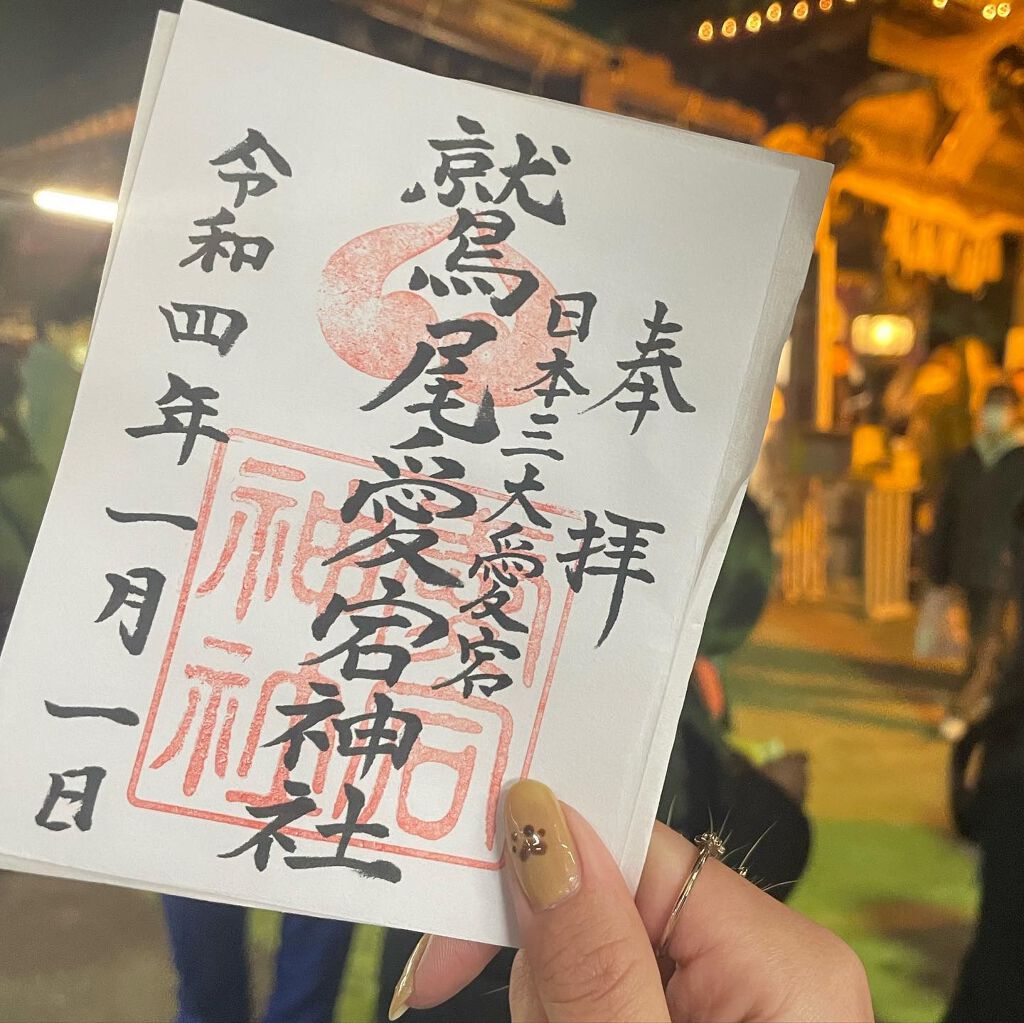 奉拝
日本三大愛宕
鷲尾愛宕神社
令和四年一月一日